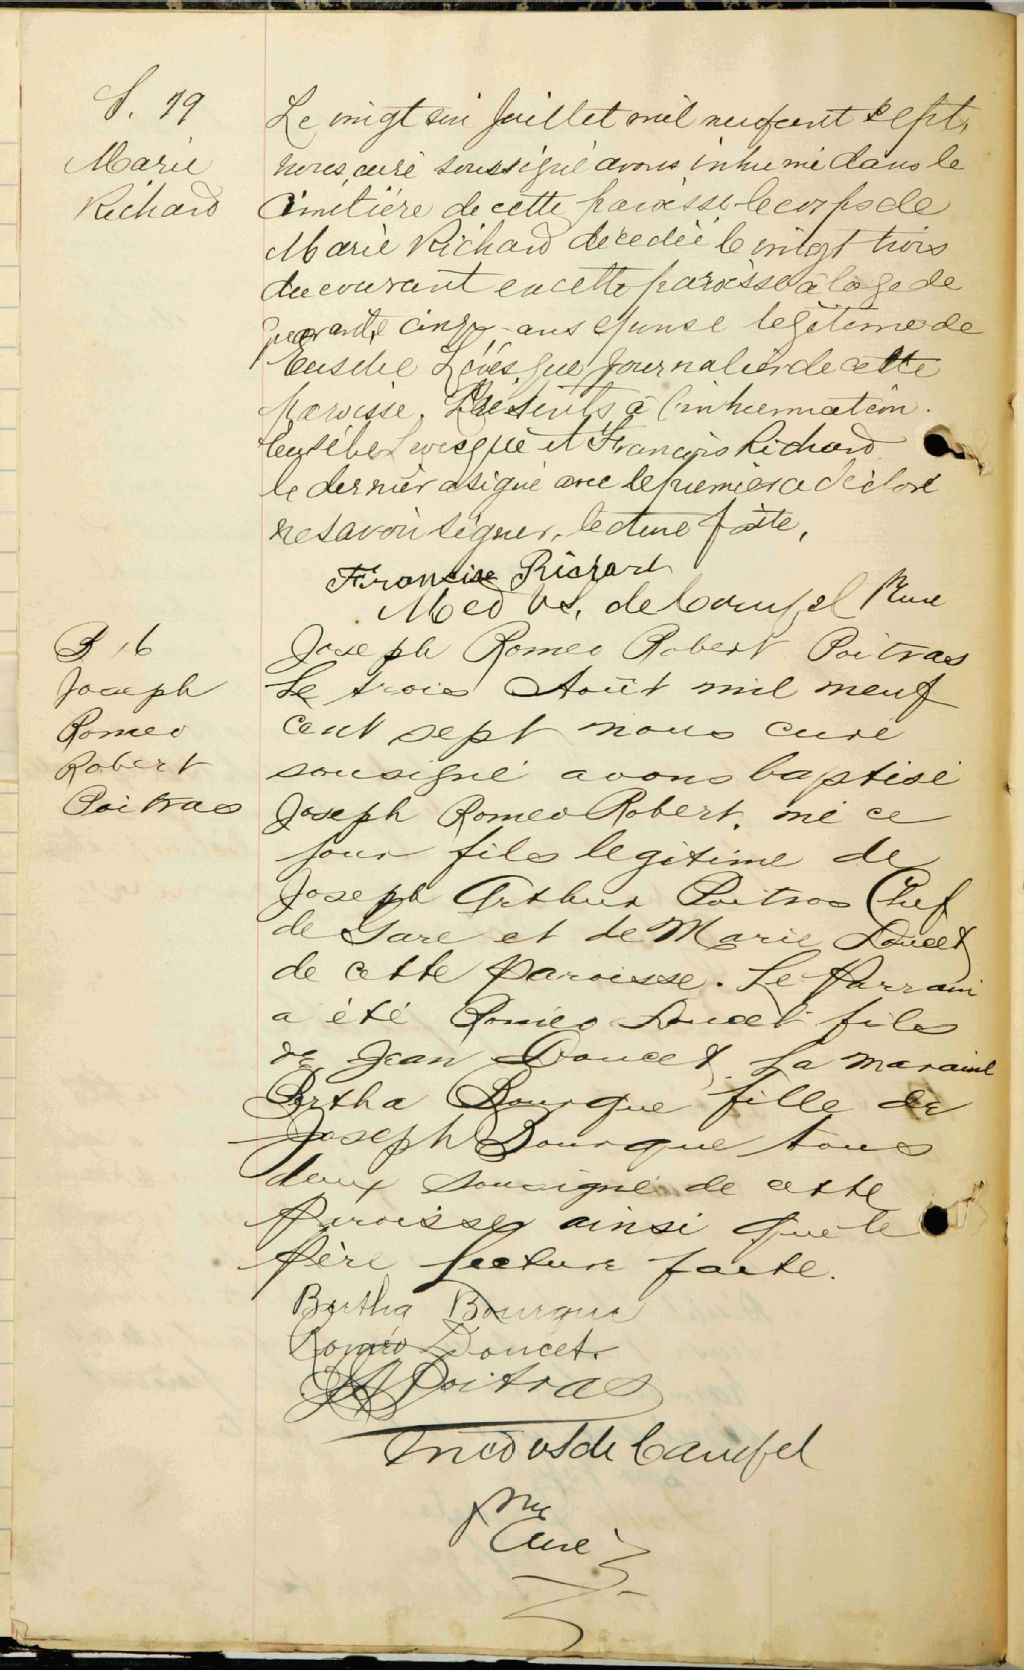 S. 19
Marie
Richard
Le vingt six Juillet mil neuf cent sept,
nous, curé soussigné avons inhumé dans le
Cimetière de cette paroisse le corps de
Marie Richard décedée le vingt trois
du courant en cette paroisse à l'age de
quarante cinq ans epouse légitime de
Eusèbe Lévesque journalier de cette
paroisse. Présents à l'inhumation.
Eusèbe Levesque et François Richard
le dernier a signé avec le premier a déclaré
ne savoir signer, lecture faite,
Francis Richard
Med de Camfel Ptre
B 16
Joseph
Romeo
Robert
Poitras
Joseph Romeo Robert Poitras
Le trois Août mil neuf
cent sept nous curé
sousigné avons baptisé
Joseph Romeo Robert. né ce
jour fils legitime de
Joseph Arthur Poitras Chef
de Gare et de Marie Doucet
de cette Paroisse. Le Parrain
a été Romeo Doucet fils
de Jean Doucet. La Maraine
Bertha Bourque fille de
Joseph Bourque tous
deux sousigné de cette
Paroisse ainsi que le
Père lecture faite.
Bertha Bourque
Roméo Doucet
JA Poitras
Med de Camfel
Ptre
Curé